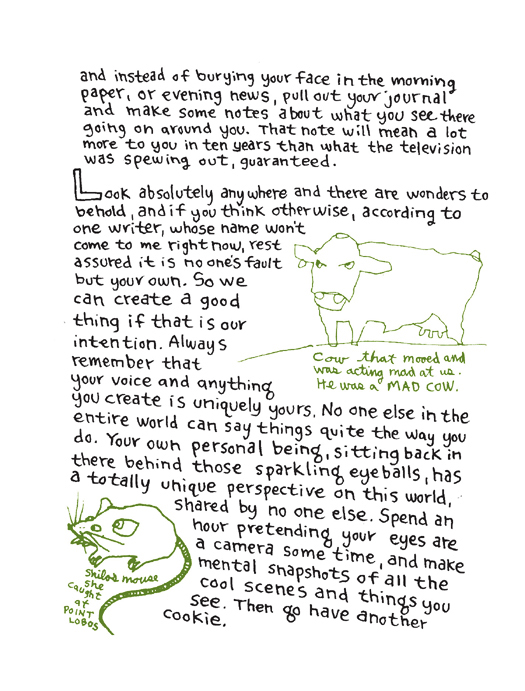 and instead of burying your face in the morning
paper, or evening news, pull out your journal
and make some notes about what you see there
going on around you. That note will mean a lot
more to you in ten years than what the television
was spewing out, guaranteed.
Look absolutely anywhere and there are wonders to
behold, and if you think otherwise, according to
one writer, whose name won't
come to me right now, rest
assured it is no one's fault
but your own. So we
can create a good
thing if that is our
intention. Always
remember that
your voice and anything
you create is uniquely yours. No one else in the
entire world can say things quite the way you
do. Your own personal being, sitting back in
there behind those sparkling eyeballs, has
a totally unique perspective on this world,
shared by no one else. Spend an
hour pretending your eyes are
a camera some time, and make
mental snapshots of all the
cool scenes and things you
see. Then go have another
cookie.
Cow that mooed and
was acting mad at us.
He was a MAD COW.
Shilos mouse
she
caught
at
POINT
LOBOS